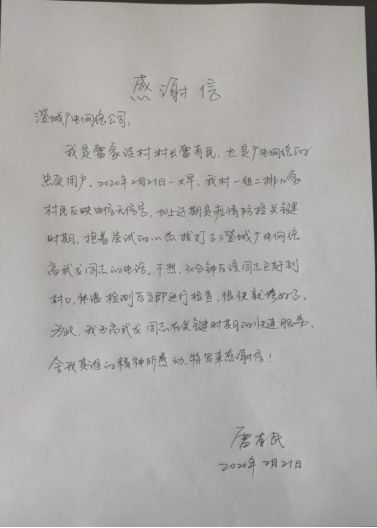 感谢信
澄城广电网络公司:
我是雷家洼村村长雷有民,也是广电网络的
忠实用户。2020年2月21日一大早,我村一组二排八家
村民反映电信无信号,加上近期是疫情防控关键
时期,抱着尝试的心态拨打了澄城广电网络
高武龙同志的电话。不想,30分钟后该同志已赶到
村口,体温检测后立即进行检查,很快就修好了。
为此,我为高武龙同志在关键时期的快速服务、
舍我其谁的精神所感动,特写来感谢信!
雷有民
2020年2月21日